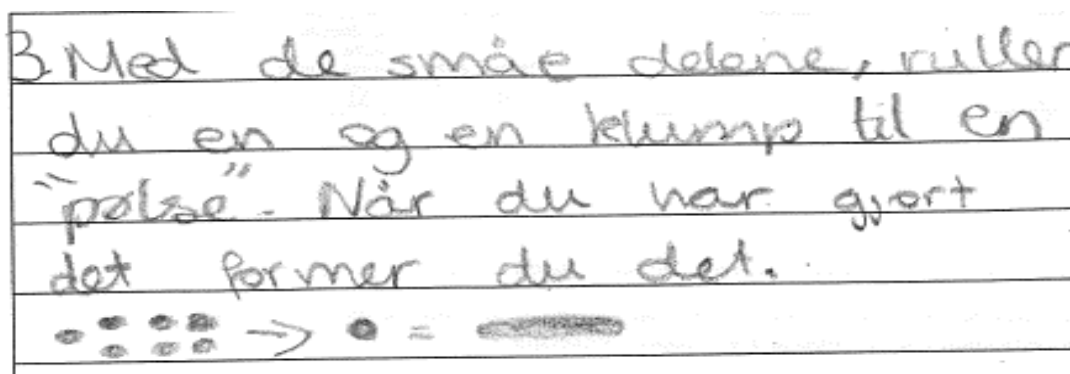 3. Med de småe delene, ruller
du en og en klump til en
"pølse". Når du har gjort
det former du det.